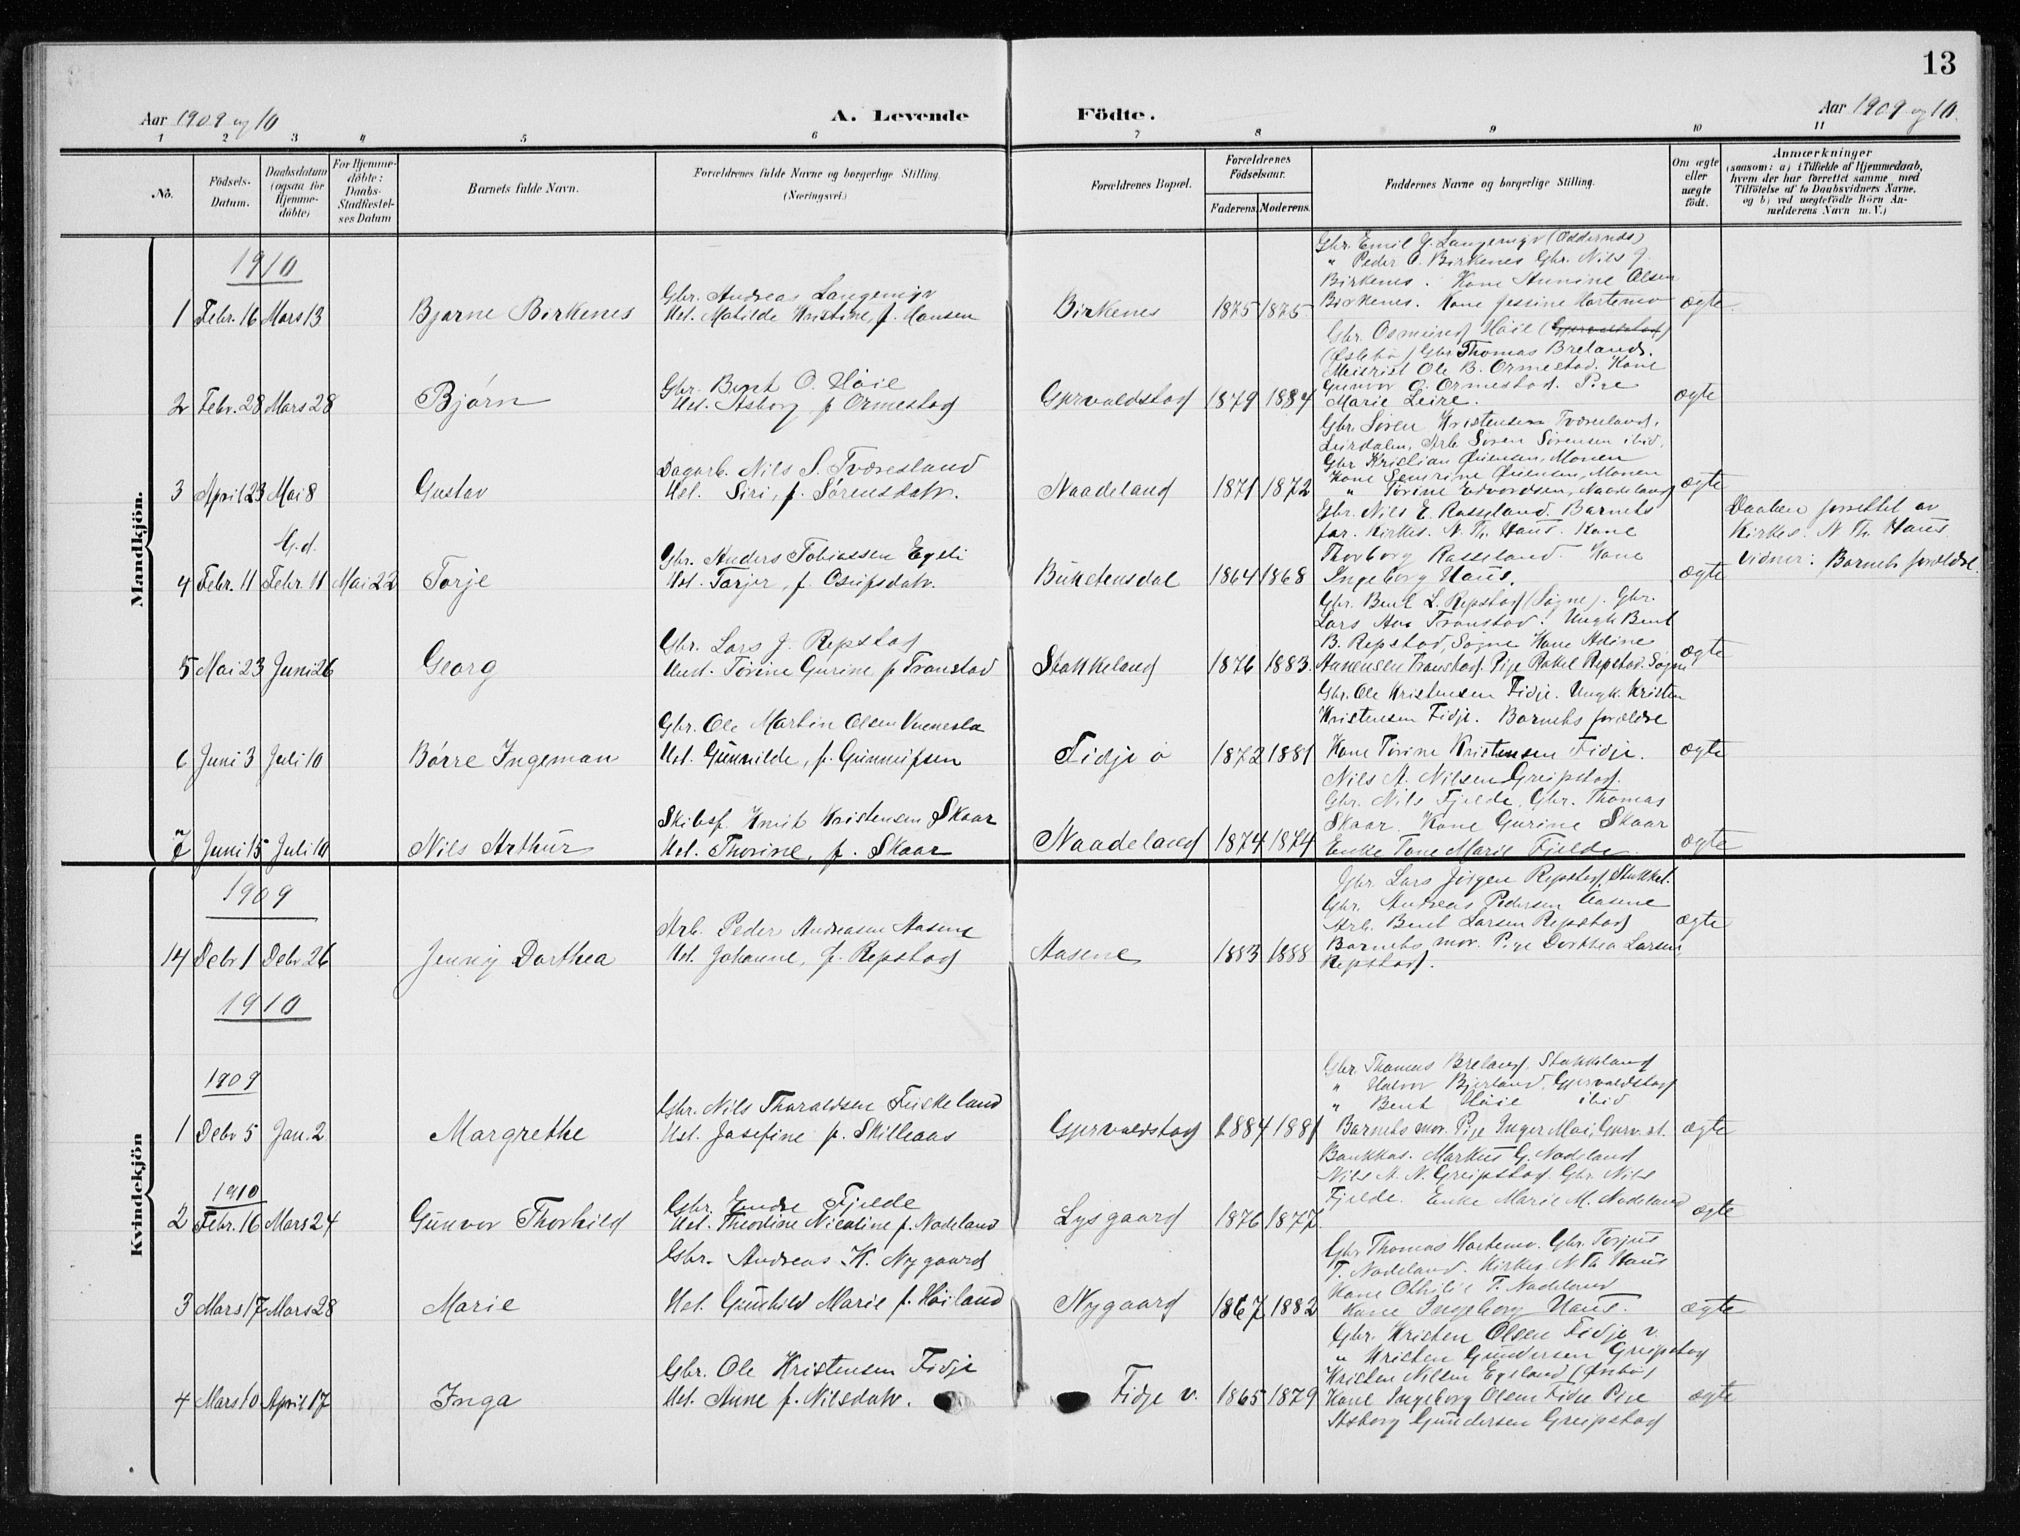 13
Aar 1909 og 10
A. Levende
Födte.
Aar 1909 og 10.
1 2 3 4 5 6 7 8 9 10 11
No.
Födsels-
Datum.
Daabsdatum
(ogsaa for
Hjemme-
döbte)
For Hjemme-
döbte:
Daabs-
Stadfæstel-
ses Datum
Barnets fulde Navn.
Forældrenes fulde Navne og borgerlige Stilling.
(Næringsvei.)
Forældrenes Bopæl.
Forældrenes
Födselsaar.
Faderens. Moderens.
Faddernes Navne og borgerlige Stilling.
Om ægte
eller
uægte
födt.
Anmærkninger
(saasom: a) i Tilfælde af Hjemmedaab,
hvem der har forrettet samme med
Tilföielse af to Daabsvidners Navne,
og b) ved uægtefödte Börn An-
melderens Navn m. V.)
Mandkjön.
1910
Gbr. Emil J. Langemyr (Oddernes)
" Peder O. Birkenes Gbr. Nils J.
Birkenes. Kone Annine Olsen
Birkenes. Kone Jessine Hortemo
1 Febr. 16 Mars 13 Bjarne Birkenes
Gbr. Andreas Langemyr
Ust. Matilde Kristine, f. Hansen
Birkenes 1875 1875 ægte
Gbr. Osmund Høie
(Øslebø) Gbr. Thomas Breland.
Ole B. Ormestad. Kone
Gunvor O. Ormestad. Pige
Marie Leire.
2 Febr. 28 Mars 28 Bjørn
Gbr. Bent O. Høie
Ust. Asborg f Ormestad
Gjervaldstad 1879 1884 ægte
Gbr. Søren Kristensen Tveresland,
Leirdalen, Arb. Søren Sørensen ibid.
Gbr Kristian Øiensen, Monen
Kone Øiensen, Monen
" Tørine Edvardsen, Naadeland
3 April 23 Mai 8 Gustav
Dagarb. Nils S. Tveresland
Ust. Siri, f. Sørensdatr.
Naadeland 1871 1872 ægte
Gbr. Nils E. Rosseland. Barnets
far. Kirkes. N. Th. Haus. Kone
Thorborg Rosseland. Kone
Ingeborg Haus.
H.d.
4 Febr. 11 Febr. 11 Mai 22 Torje
Gbr. Anders Tobiassen Egeli
Ust. Torjer, f Osufsdatr.
Bukkensdal 1864 1868 ægte
Daaben forrettet av
Kirkes. N. Th. Haus.
Vidner: Barnets forældre.
Gbr. Bent L. Repstad (Søgne). Gbr.
Lars Aa. Tronstad. Ungk. Bent
B. Repstad, Søgne Kone Adine
Aanensen Tronstad. Pige Rakel Repstad. Søgne
5 Mai 23 Juni 26 Georg
Gbr. Lars J. Repstad
Ust. Tørine Gurine f Tronstad
Stakkeland 1876 1883 ægte
Gbr. Ole Kristensen Fidje. Ungk. Kristen
Kristensen Fidje. Barnets forældre
Kone Tørine Kristensen Fidje.
6 Juni 3 Juli 10 Børre Ingeman
Gbr. Ole Martin Olsen Vennesla
Ust. Gunnilde, f. Gunneifsen
Fidje ø 1872 1881 ægte
Nils A. Nilsen Greipstad.
Gbr. Nils Fjelde. Gbr. Thomas
Skaar. Kone Gurine Skaar
Enke Tone Marie Fjelde.
7 Juni 15 Juli 10 Nils Arthur
Skibsf. Knut Kristensen Skaar
Ust. Thorine, f. Skaar
Naadeland 1874 1874 ægte
Kvindekjön
1909
Gbr. Lars Jørgen Repstad, Stakkel.
Gbr. Andreas Pedersen Aasene
Arb. Bent Larsen Repstad
Barnets mor. Pige Dorthea Larsen,
Repstad.
14 Debr 1 Debr 26 Jenny Dorthea
Arb. Peder Andreasen Aasene
Ust. Johanne, f. Repstad
Aasene 1883 1888 ægte
1910
1909
Gbr. Thomas Breland, Stakkeland
" Halvor Bjerland, Gjervaldstad
" Bent Høie ibid
Barnets mor. Pige Inger Moi, Gjerv.st.
1 Debr 5 Jan. 2 Margrethe
Gbr. Nils Tharaldsen Fuskeland
Ust. Josefine f. Skilleaas
Gjervaldstad 1884 1881 ægte
Bankkas. Markus G. Nodeland
Nils A. N. Greipstad. Gbr. Nils
Fjelde. Enke Marie M. Nodeland
1910
2 Febr. 16 Mars 24 Gunvor Thorhild
Gbr. Endre Fjelde
Ust. Theodine Nicoline f. Nodeland
Lysgaard 1876 1877 ægte
Gbr Thomas Hortemo. Gbr. Torjus
T. Nodeland. Kirkes. N. Th Haus
Kone Othilie T. Nodeland
Kone Ingeborg Haus.
3 Mars 17 Mars 28 Marie
Gbr. Andreas K. Nygaard
Ust. Gunhild Marie f. Høiland
Nygaard 1867 1882 ægte
Gbr. Kristen Olsen Fidje v.
" Kristen Gundersen Greipstad
Kristen Nilsen Egeland (Øvrebø)
Kone Ingeborg Olsen Fidje Pige
Asborg Gundersen Greipstad
4 Mars 10 April 17 Inga
Gbr. Ole Kristensen Fidje
Ust. Anne f. Nilsdatr.
Fidje v. 1865 1879 ægte